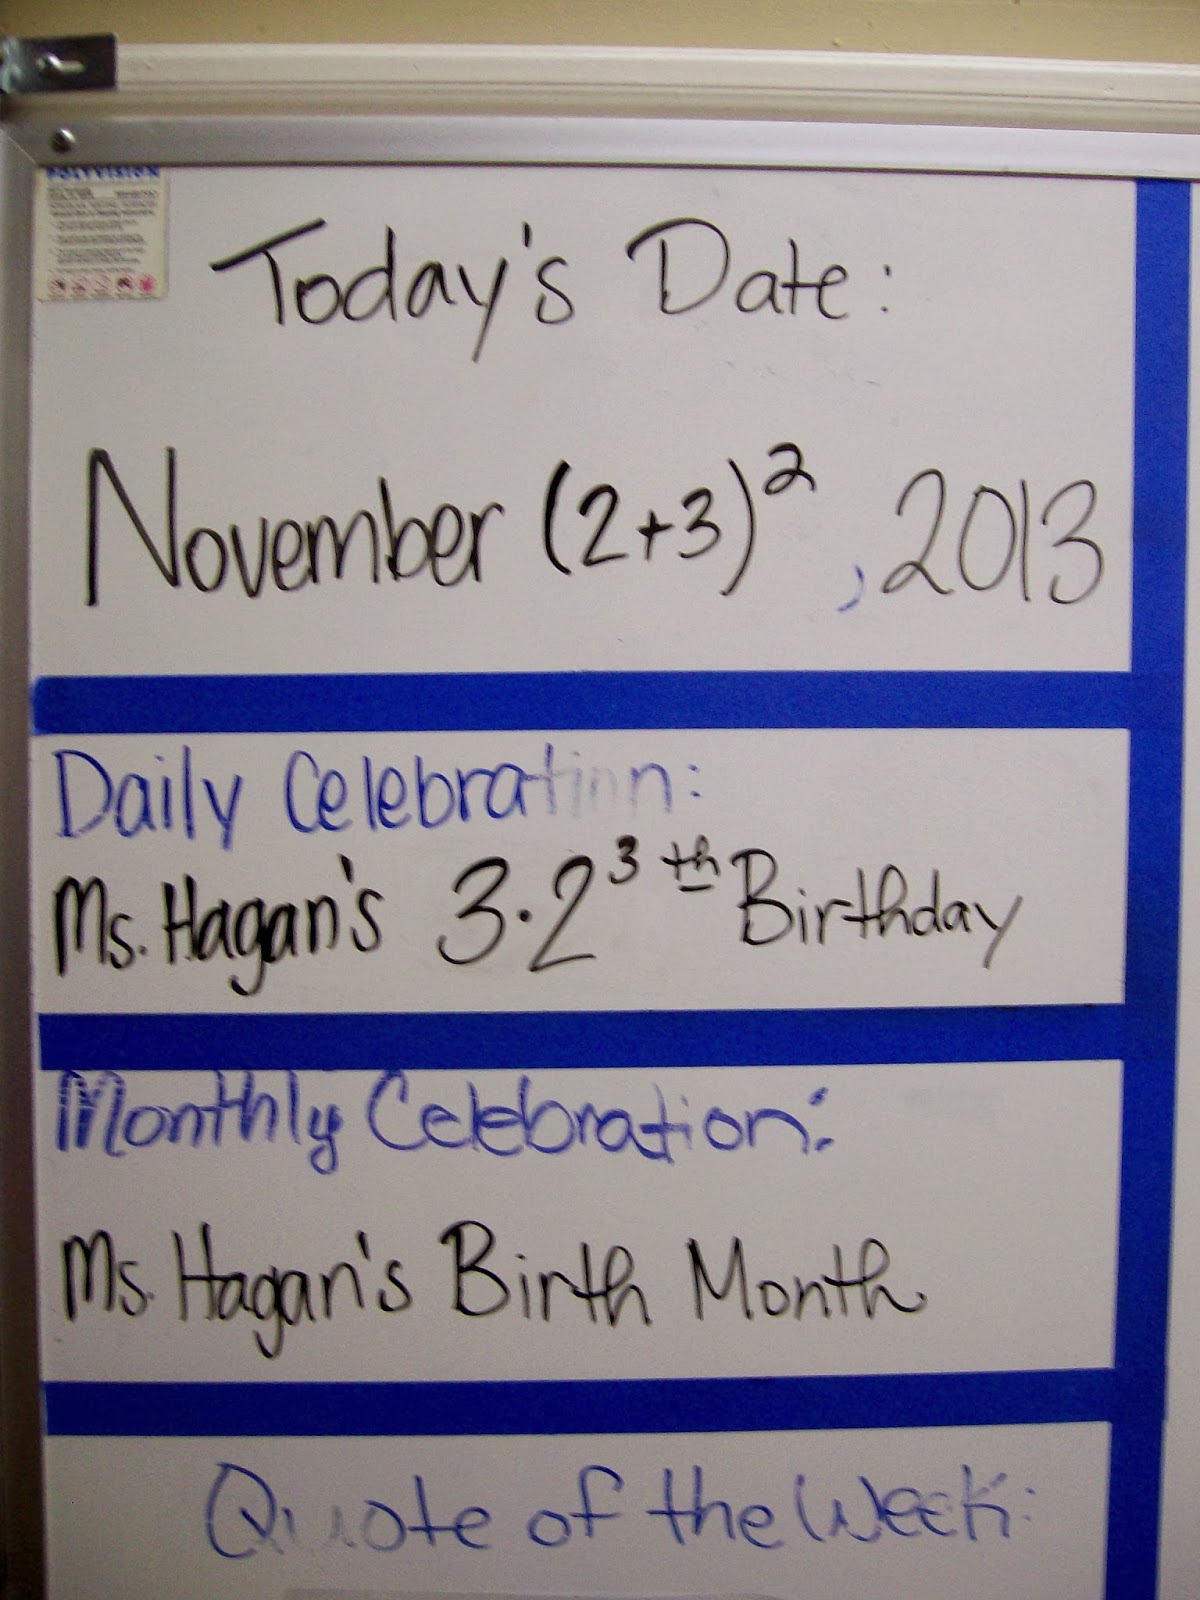 POLYVISION
Today's Date:
November (2+3)², 2013
Daily Celebration:
Ms. Hagan's 3·2³ th Birthday
Monthly Celebration:
Ms. Hagan's Birth Month
Quote of the Week: